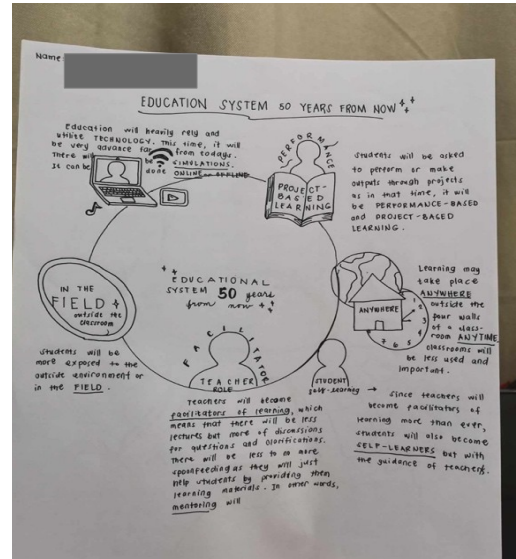 Name:
EDUCATION SYSTEM 50 YEARS FROM NOW
Education will heavily rely and
utilize TECHNOLOGY. This time, it will
be very advance far from todays.
There will be SIMULATIONS.
It can be done ONLINE or OFFLINE
PERFORMANCE
PROJECT-
BASED
LEARNING
students will be asked
to perform or make
outputs through projects
as in that time, it will
be PERFORMANCE-BASED
and PROJECT-BASED
LEARNING.
IN THE
FIELD
outside the
classroom
students will be
more exposed to the
outside environment or
in the FIELD.
EDUCATIONAL
SYSTEM 50 years
from now
ANYWHERE
1
2
3
4
5
6
7
Learning may
take place
ANYWHERE
outside the
four walls
of a class-
room ANYTIME.
classrooms will
be less used and
important.
FACILITATOR
TEACHER
ROLE
Teachers will become
facilitators of learning, which
means that there will be less
lectures but more of discussions
for questions and clarifications.
There will be less to no more
spoonfeeding as they will just
help students by providing them
learning materials. In other words,
mentoring will
STUDENT
self-learning
→ since teachers will
become facilitators of
learning more than ever,
students will also become
SELF-LEARNERS but with
the guidance of teachers.